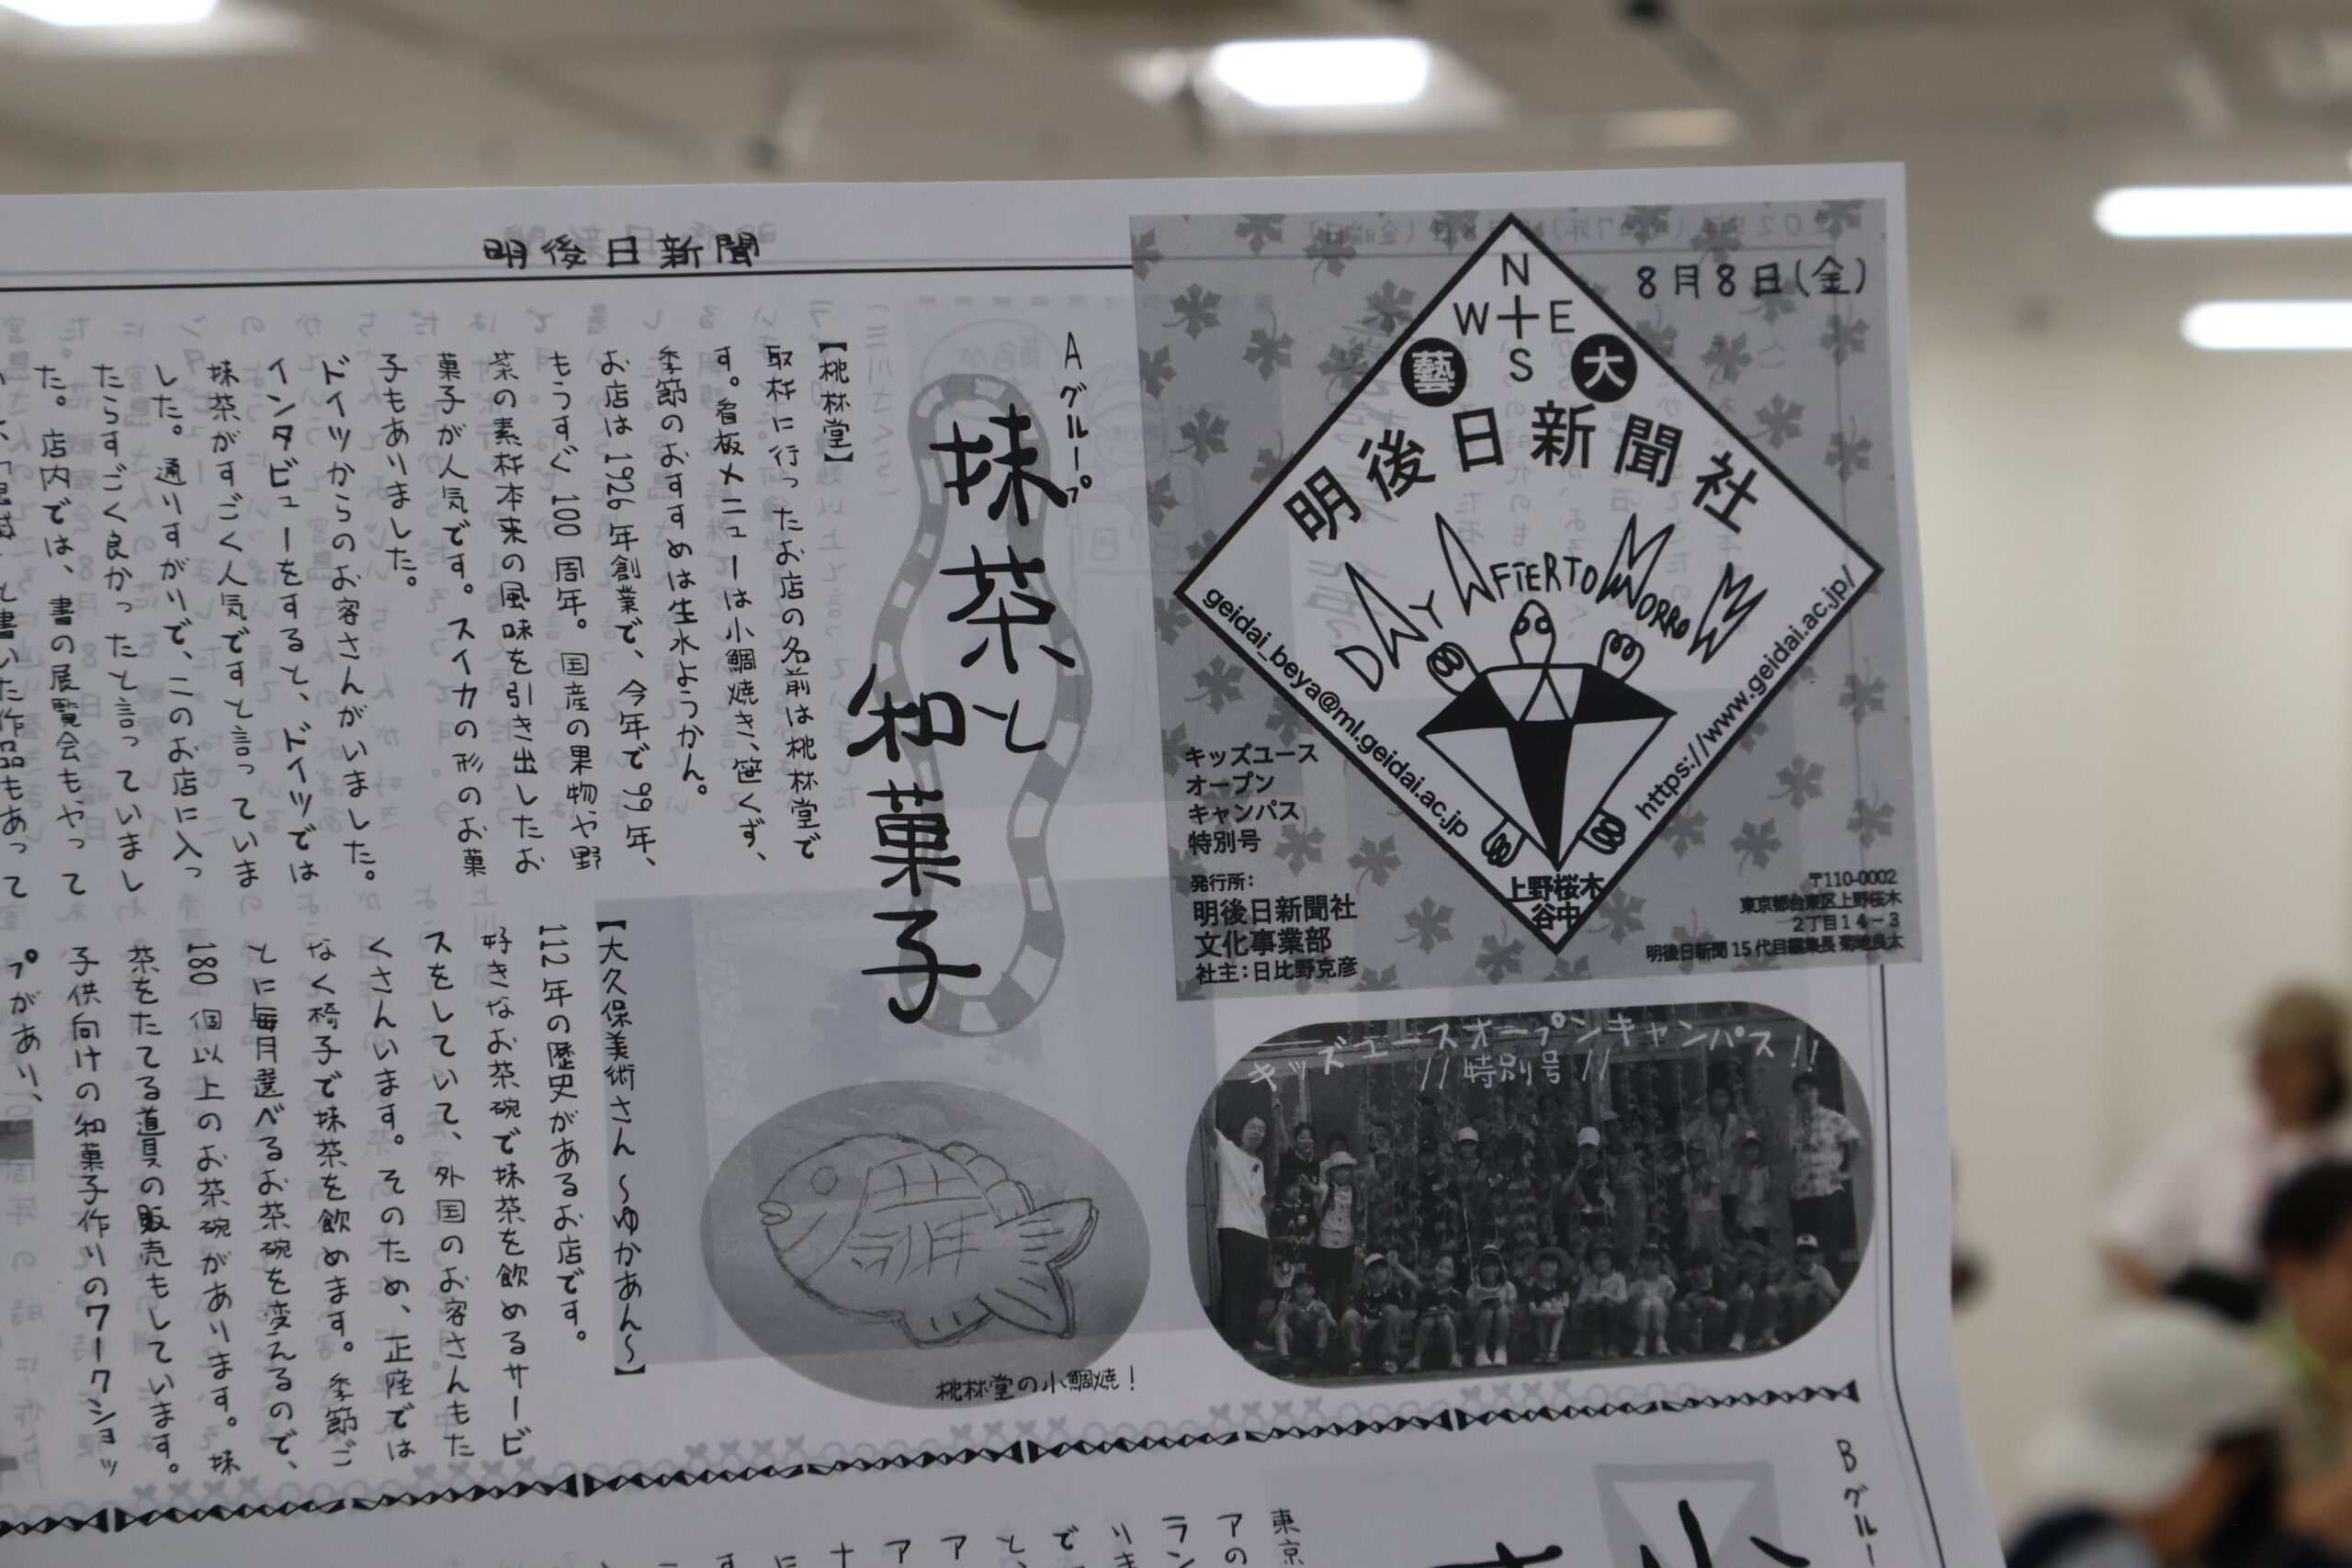 明後日新聞
8月8日(金)
N
W E
S
藝 大
明後日新聞社
DAY AFTER TOMORROW
geidai_beya@ml.geidai.ac.jp
https://www.geidai.ac.jp/
上野桜木
谷中
キッズユース
オープン
キャンパス
特別号
発行所:
明後日新聞社
文化事業部
社主:日比野克彦
〒110-0002
東京都台東区上野桜木
2丁目14-3
明後日新聞15代目編集長 菊地良太
キッズユースオープンキャンパス!!
//特別号//
Aグループ
抹茶と
和菓子
【桃林堂】
取材に行ったお店の名前は桃林堂で
す。看板メニューは小鯛焼き、笹くず、
季節のおすすめは生水ようかん。
お店は1926年創業で、今年で99年、
もうすぐ100周年。国産の果物や野
茶の素材本来の風味を引き出したお
菓子が人気です。スイカの形のお菓
子もありました。
ドイツからのお客さんがいました。
インタビューをすると、ドイツでは
抹茶がすごく人気ですと言っていま
した。通りすがりで、このお店に入っ
たらすごく良かったと言っていまし
た。店内では、書の展覧会もやって
と書いた作品もあって
【大久保美術さん ~ゆかあん~】
112年の歴史があるお店です。
好きなお茶碗で抹茶を飲めるサービ
スをしていて、外国のお客さんもた
くさんいます。そのため、正座では
なく椅子で抹茶を飲めます。季節ご
とに毎月選べるお茶碗を変えるので、
180個以上のお茶碗があります。抹
茶をたてる道具の販売もしています。
子供向けの和菓子作りのワークショッ
プがあり、
桃林堂の小鯛焼!
Bグルー
東京
アの
ラン